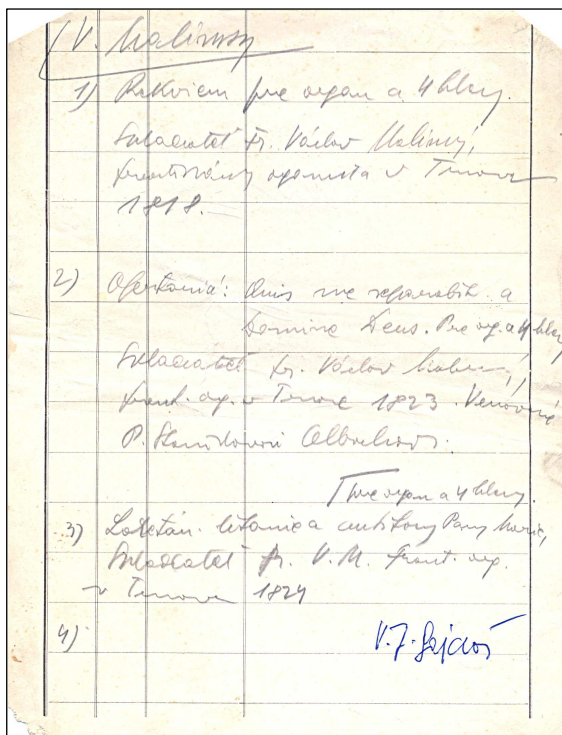 V. Malinský
1) Rekviem pre organ a 4 hlasy.
Skladateľ Fr. Václav Malinský,
františkánsky organista v Trnave
1818.
2) Ofertóriá: Quis me separabit a
Domine Deus. Pre org. a 4 hlasy
Skladateľ fr. Václav
frant. org. v Trnave 1823. Venované
P.
pre organ a 4 hlasy.
3) Loretán. litánie a antifony Panny Márie,
Skladateľ fr. V. M. frant. org.
v Trnave 1824
4)
V. J. Gajdoš